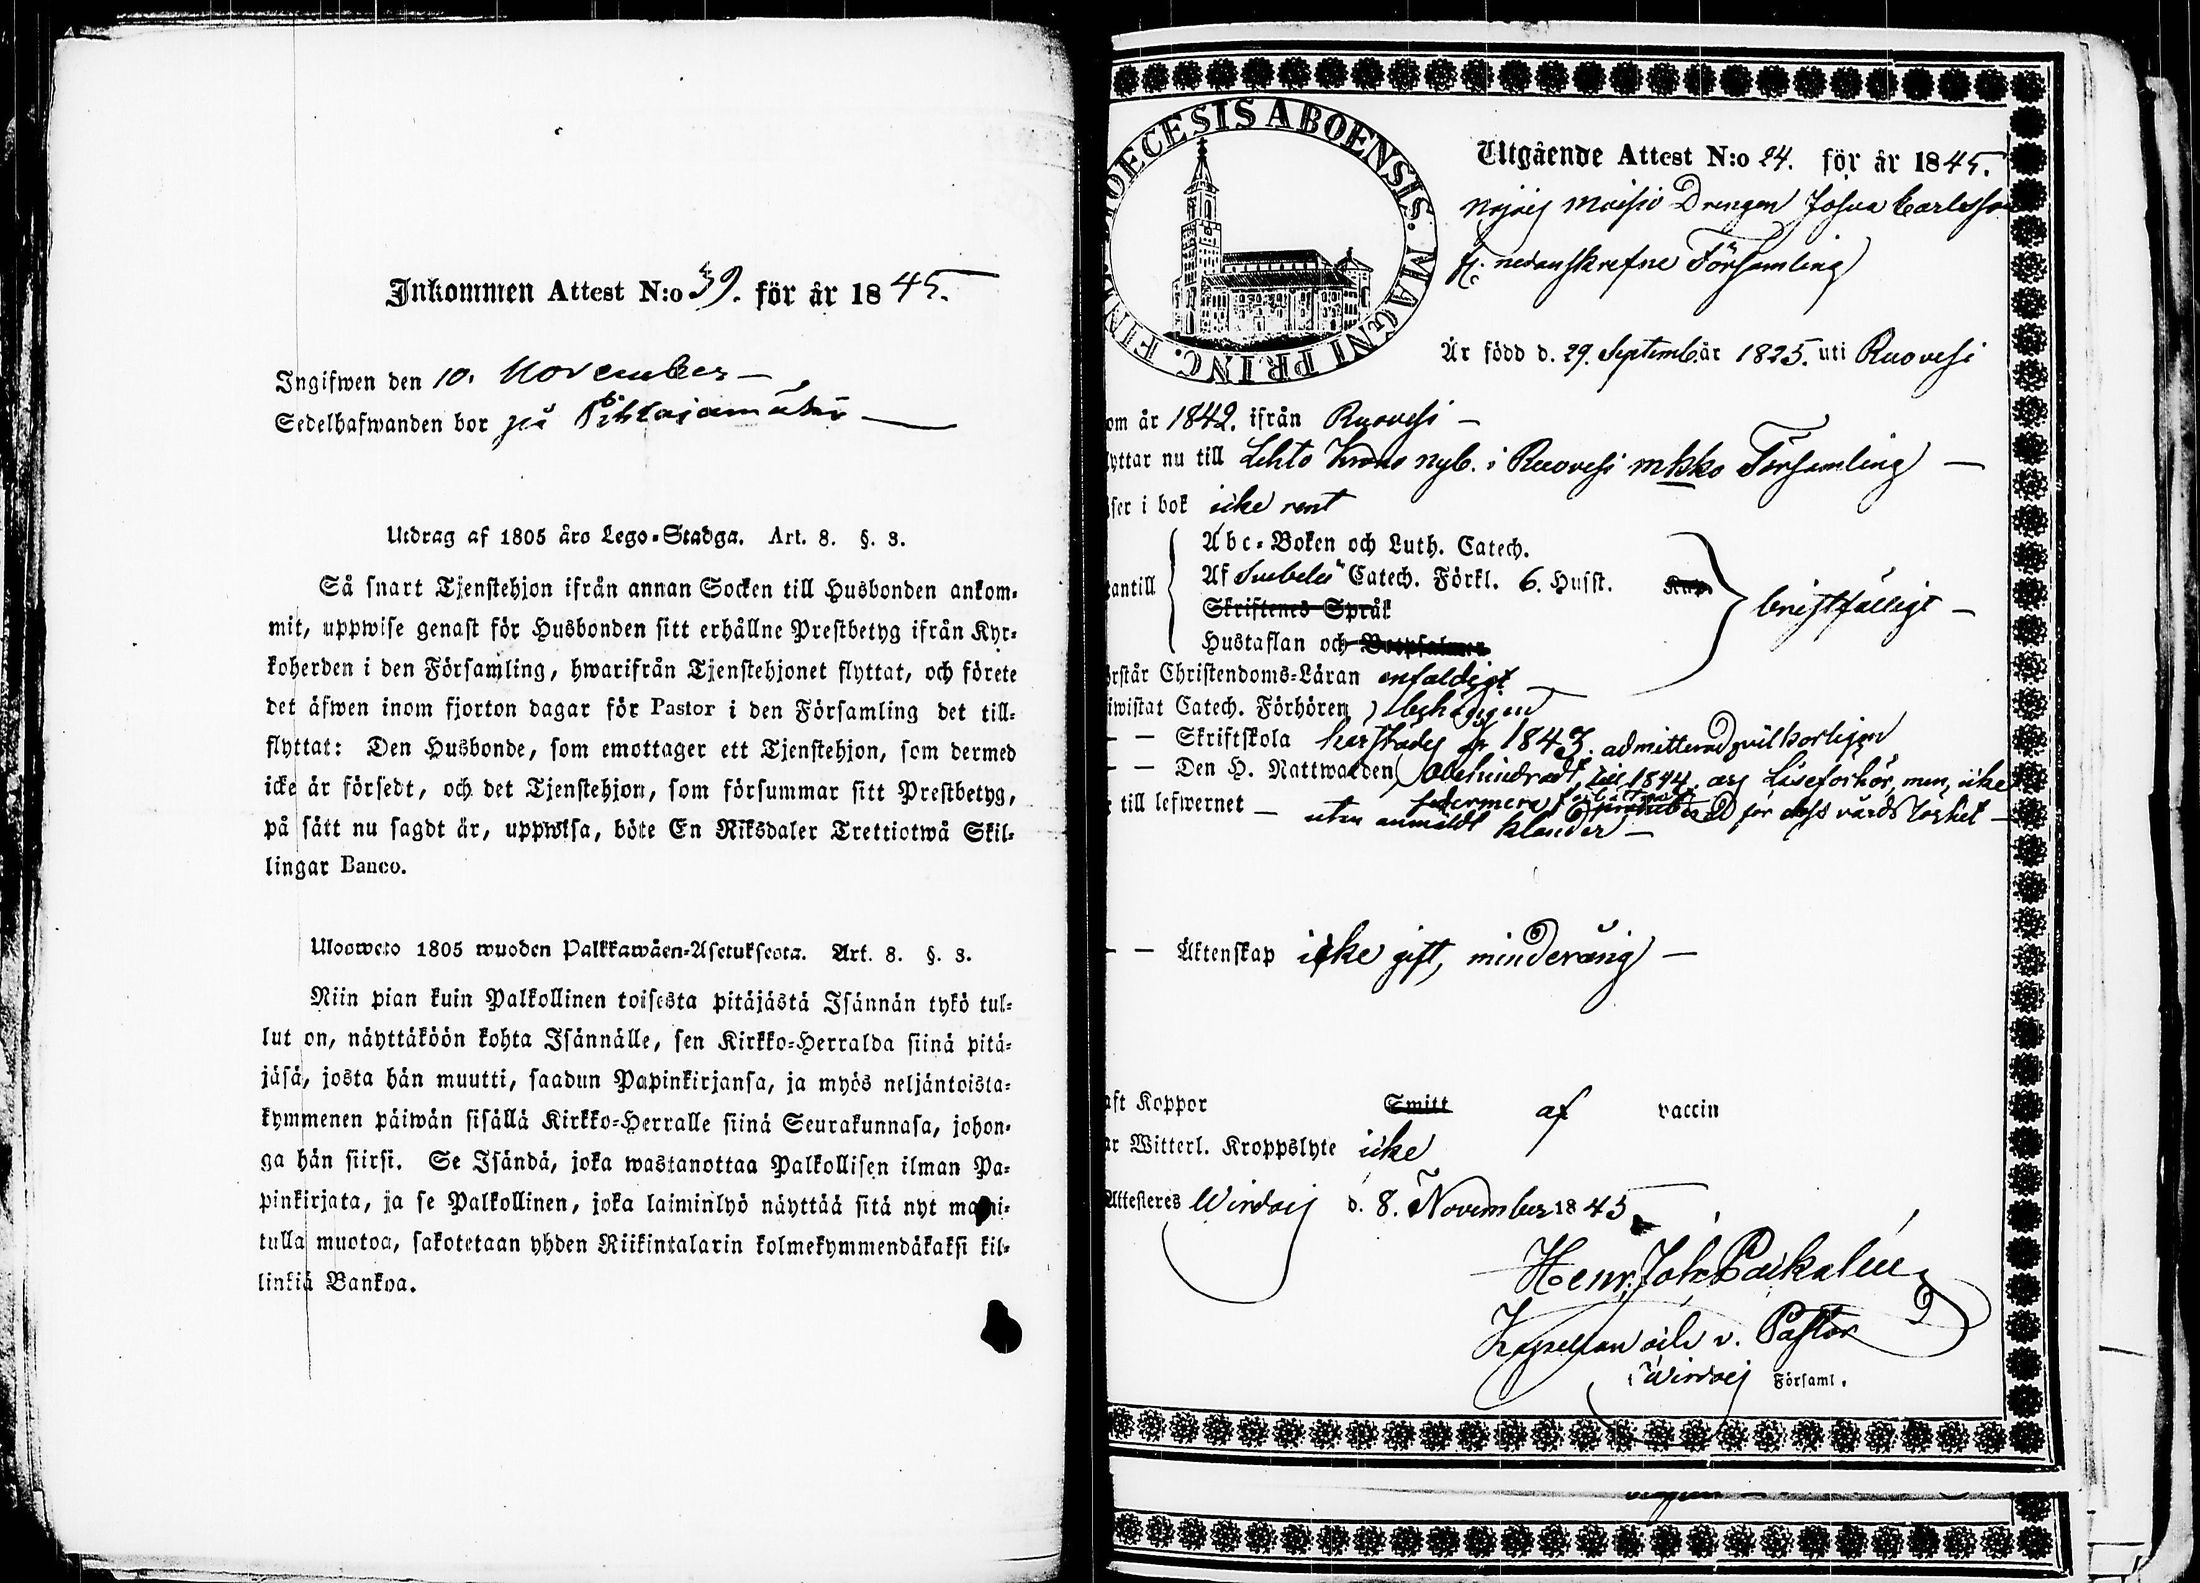 Inkommen Attest N:o 39. för år 1845.
Ingifwen den 10. November
Sedelhafwanden bor på Pihlajamäki
Utdrag af 1805 års Lego-Stadga. Art. 8. §. 3.
Så snart Tjenstehjon ifrån annan Socken till Husbonden ankom-
mit, uppwise genast för Husbonden sitt erhållne Prestbetyg ifrån Kyr-
koherden i den Församling, hwarifrån Tjenstehjonet flyttat, och förete
det äfwen inom fjorton dagar för Pastor i den Församling det till-
flyttat: Den Husbonde, som emottager ett Tjenstehjon, som dermed
icke är försedt, och det Tjenstehjon, som försummar sitt Prestbetyg,
på sätt nu sagdt är, uppwisa, böte En Riksdaler Trettiotwå Skil-
lingar Banco.
Uloswето 1805 wuoden Palkkawäen-Asetuksesta. Art. 8. §. 3.
Niin pian kuin Palkollinen toisesta pitäjästä Isännän tykö tul-
lut on, näyttäköön kohta Isännälle, sen Kirkko-Herralda siinä pitä-
jäsä, josta hän muutti, saadun Papinkirjansa, ja myös neljäntoista-
kymmenen päiwän sisällä Kirkko-Herralle siinä Seurakunnasa, johon-
ga hän siirsi. Se Isändä, joka wastanottaa Palkollisen ilman Pa-
pinkirjata, ja se Palkollinen, joka laiminlyö näyttää sitä nyt maini-
tulla muotoa, sakotetaan yhden Riikintalarin kolmekymmendäkaksi kil-
linkiä Bankoa.
DIOECESIS ABOENSIS. MAGNI PRINC. FIN
Utgående Attest N:o 24. för år 1845.
Drengen Josua Carlsson
fr. nedanskrefne Församling
Är född d. 29. Septemb. år 1825. uti Ruovesi
om år 1842. ifrån Ruovesi
yttar nu till Lehto Krono nyb. i Ruovesi mkko Församling
ser i bok icke rent
antill
Abc-Boken och Luth. Catech.
Af Svebelii Catech. Förkl. 6. Husst. Kap.
Skriftenes Språk
Hustaflan och Botpsalmer
bristfälligt
rstår Christendoms-Läran enfaldigt
iwistat Catech. Förhören behörigen
Skriftskola härstädes år 1843. admitterad wilkorligen
Den H. Nattwarden obehindradt till 1844 års Läseförhör, men icke
sedermera för dess vårdslöshet
till lefwernet uten anmäldt klander
Äktenskap icke gift, minderårig
aft Koppor Smitt af vaccin
ar Witterl. Kroppslyte icke
Attesteres Wirdois d. 8. November 1845
Henr. Joh. Paikalén
Kapellan och v. Pastor
i Wirdois Församl.